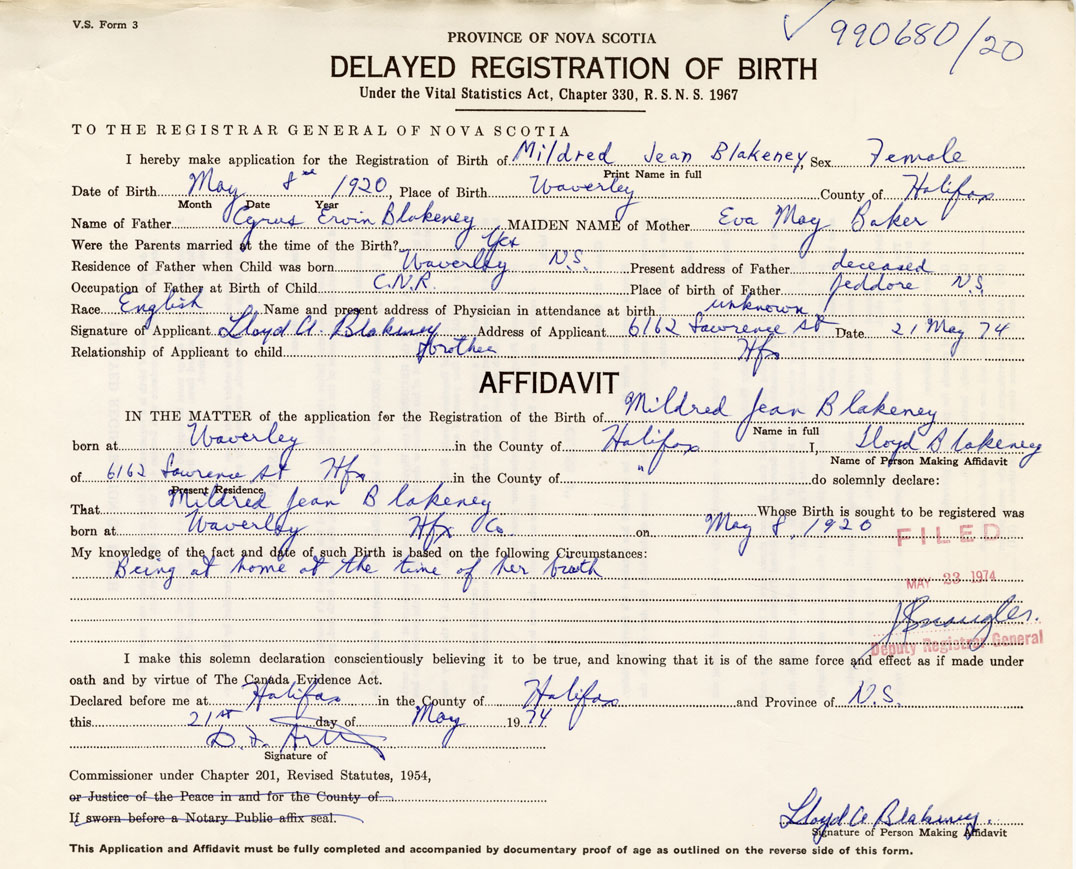 V.S. Form 3
✓ 990680/20
PROVINCE OF NOVA SCOTIA
DELAYED REGISTRATION OF BIRTH
Under the Vital Statistics Act, Chapter 330, R.S.N.S. 1967
TO THE REGISTRAR GENERAL OF NOVA SCOTIA
I hereby make application for the Registration of Birth of Mildred Jean Blakeney, Sex Female
Print Name in full
Date of Birth May 8 1920, Place of Birth Waverley County of Halifax
Month Date Year
Name of Father Cyrus Ervin Blakeney MAIDEN NAME of Mother Eva May Baker
Were the Parents married at the time of the Birth? Yes
Residence of Father when Child was born Waverley N.S. Present address of Father deceased
Occupation of Father at Birth of Child C.N.R. Place of birth of Father Jeddore N.S.
Race English Name and present address of Physician in attendance at birth unknown
Signature of Applicant Lloyd A. Blakeney Address of Applicant 6162 Lawrence St Date 21 May 74
Relationship of Applicant to child brother Hfx
AFFIDAVIT
IN THE MATTER of the application for the Registration of the Birth of Mildred Jean Blakeney
Name in full
born at Waverley in the County of Halifax I, Lloyd Blakeney
Name of Person Making Affidavit
of 6162 Lawrence St Hfx in the County of " do solemnly declare:
Present Residence
That Mildred Jean Blakeney Whose Birth is sought to be registered was
born at Waverley Hfx Co. on May 8, 1920
FILED
My knowledge of the fact and date of such Birth is based on the following Circumstances:
Being at home at the time of her birth
MAY 23 1974
Deputy Registrar General
I make this solemn declaration conscientiously believing it to be true, and knowing that it is of the same force and effect as if made under
oath and by virtue of The Canada Evidence Act.
Declared before me at Halifax in the County of Halifax and Province of N.S.
this 21st day of May 1974
Signature of
Commissioner under Chapter 201, Revised Statutes, 1954,
or Justice of the Peace in and for the County of
If sworn before a Notary Public affix seal.
Lloyd A Blakeney.
Signature of Person Making Affidavit
This Application and Affidavit must be fully completed and accompanied by documentary proof of age as outlined on the reverse side of this form.